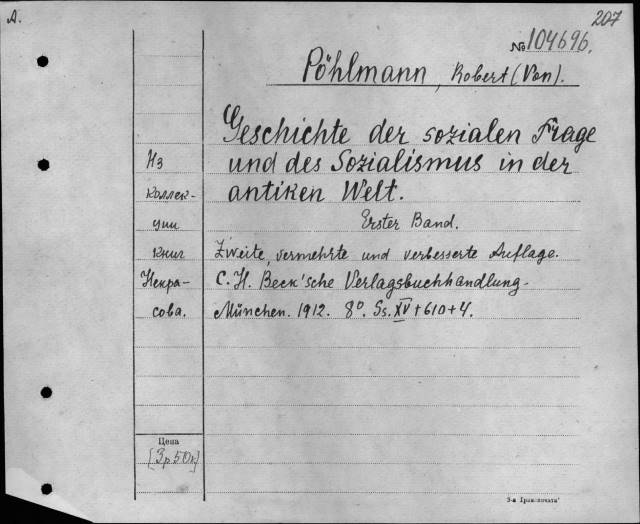 А.
207
№ 104696.
Pöhlmann, Robert (Von).
Geschichte der sozialen Frage
und des Sozialismus in der
antiken Welt.
Erster Band.
Zweite, vermehrte und verbesserte Auflage.
C. H. Beck'sche Verlagsbuchhandlung.
München. 1912. 8°. Ss. XV + 610 + 4.
Из
коллек-
ции
книг
Некра-
сова.
Цена
[3р50к]